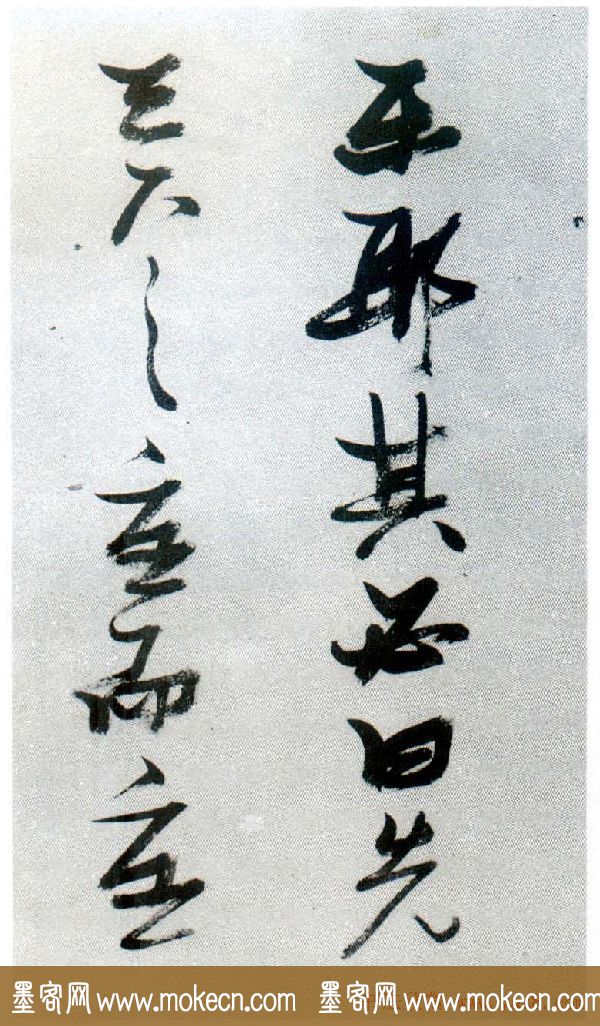 樂耶其必曰先
天下之憂而憂
墨客网www.mokecn.com 墨客网www.mokecn.com